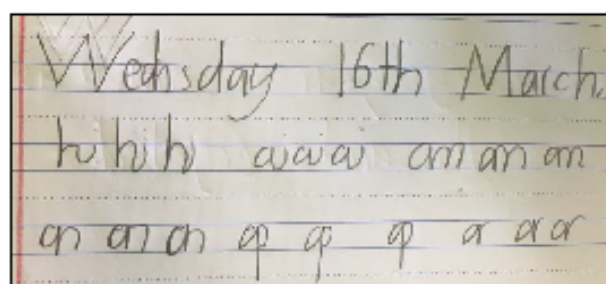 Wednsday 16th March.
hi hi hi ai ai ai am am am
an an an ap ap ap ar ar ar